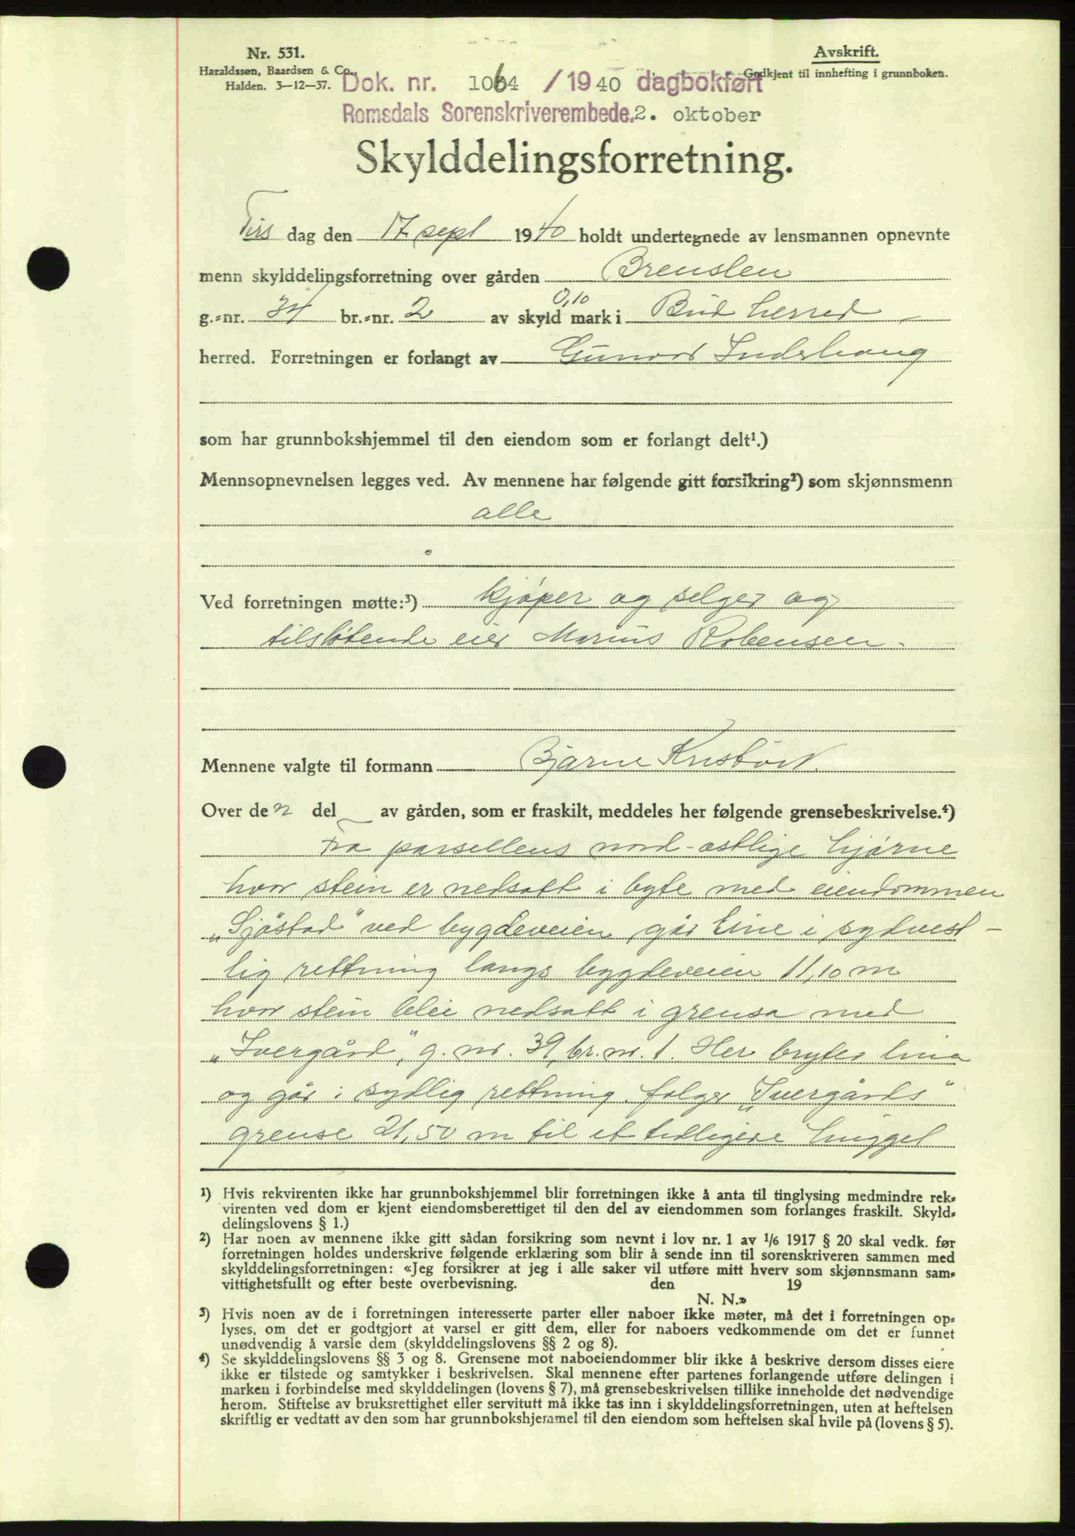 Nr. 531.
Haraldssøn, Baardsen & Co.,
Halden. 3—12—37.
Avskrift.
Godkjent til innhefting i grunnboken.
Dok. nr. 1064 / 1940 dagbokført
Romsdals Sorenskriverembede. 2. oktober
Skylddelingsforretning.
Tirs dag den 17 sept 1940 holdt undertegnede av lensmannen opnevnte
menn skylddelingsforretning over gården Brenslen
g.-nr. 34 br.-nr. 2 av skyld 0,10 mark i Bud herred
herred. Forretningen er forlangt av Gunvor Inderhaug
som har grunnbokshjemmel til den eiendom som er forlangt delt¹.)
Mennsopnevnelsen legges ved. Av mennene har følgende gitt forsikring²) som skjønnsmenn
alle
Ved forretningen møtte:³) kjøper og selger og
tilstøtende eier Marius
Mennene valgte til formann Bjarne
Over de n del av gården, som er fraskilt, meddeles her følgende grensebeskrivelse.⁴)
Fra parsellens nord-østlige hjørne
hvor stein er nedsatt i byte med eiendommen
„Sjøstad" ved bygdeveien går line i sydvest-
lig rettning langs bygdeveien 11,10 m
hvor stein blei nedsatt i grensa med
„Ivergård", g. nr. 39, br. nr. 1. Her brytes lina
og går i sydlig rettning følger „Ivergårds"
grense 21,50 m til et tidligere huggel
¹) Hvis rekvirenten ikke har grunnbokshjemmel blir forretningen ikke å anta til tinglysing medmindre rek-
virenten ved dom er kjent eiendomsberettiget til den del av eiendommen som forlanges fraskilt. Skyld-
delingslovens § 1.)
²) Har noen av mennene ikke gitt sådan forsikring som nevnt i lov nr. 1 av ¹/₆ 1917 § 20 skal vedk. før
forretningen holdes underskrive følgende erklæring som blir å sende inn til sorenskriveren sammen med
skylddelingsforretningen: «Jeg forsikrer at jeg i alle saker vil utføre mitt hverv som skjønnsmann sam-
vittighetsfullt og efter beste overbevisning. den 19
N. N.»
³) Hvis noen av de i forretningen interesserte parter eller naboer ikke møter, må det i forretningen op-
lyses, om det er godtgjort at varsel er gitt dem, eller for naboers vedkommende om det er funnet
unødvendig å varsle dem (skylddelingslovens §§ 2 og 8).
⁴) Se skylddelingslovens §§ 3 og 8. Grensene mot naboeiendommer blir ikke å beskrive dersom disses eiere
ikke er tilstede og samtykker i beskrivelsen. Skal mennene efter partenes forlangende utføre delingen i
marken i forbindelse med skylddelingen (lovens § 7), må grensebeskrivelsen tillike inneholde det nødvendige
herom. Stiftelse av bruksrettighet eller servitutt må ikke tas inn i skylddelingsforretningen, uten at heftelsen
skriftlig er vedtatt av den som har grunnbokshjemmel til den eiendom som heftelsen skal hvile på (lovens § 5).